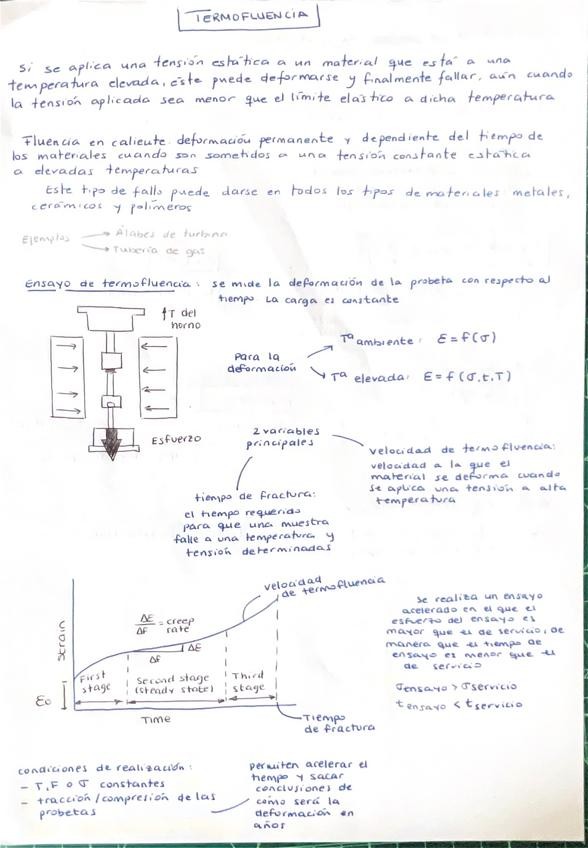 TERMOFLUENCIA
Si se aplica una tensión estática a un material que está a una
temperatura elevada, éste puede deformarse y finalmente fallar, aún cuando
la tensión aplicada sea menor que el límite elástico a dicha temperatura
Fluencia en caliente: deformación permanente y dependiente del tiempo de
los materiales cuando son sometidos a una tensión constante estática
a elevadas temperaturas
Este tipo de fallo puede darse en todos los tipos de materiales: metales,
cerámicos y polímeros
Ejemplos
Álabes de turbina
Tubería de gas
Ensayo de termofluencia: se mide la deformación de la probeta con respecto al
tiempo. La carga es constante
↑T del
horno
Esfuerzo
Para la
deformación
Tª ambiente: E = f(σ)
Tª elevada: E = f(σ,t,T)
2 variables
principales
velocidad de termofluencia:
velocidad a la que el
material se deforma cuando
se aplica una tensión a alta
temperatura
tiempo de fractura:
el tiempo requerido
para que una muestra
falle a una temperatura y
tensión determinadas
velocidad
de termofluencia
Strain
ΔE
ΔF
= creep
rate
ΔE
ΔF
First
stage
Second stage
(steady state)
Third
stage
Eo
Time
Tiempo
de fractura
Se realiza un ensayo
acelerado en el que el
esfuerzo del ensayo es
mayor que el de servicio, de
manera que el tiempo de
ensayo es menor que el
de servicio
σensayo > σservicio
tensayo < tservicio
condiciones de realización:
- T, F o σ constantes
- tracción/compresión de las
probetas
permiten acelerar el
tiempo y sacar
conclusiones de
cómo será la
deformación en
años